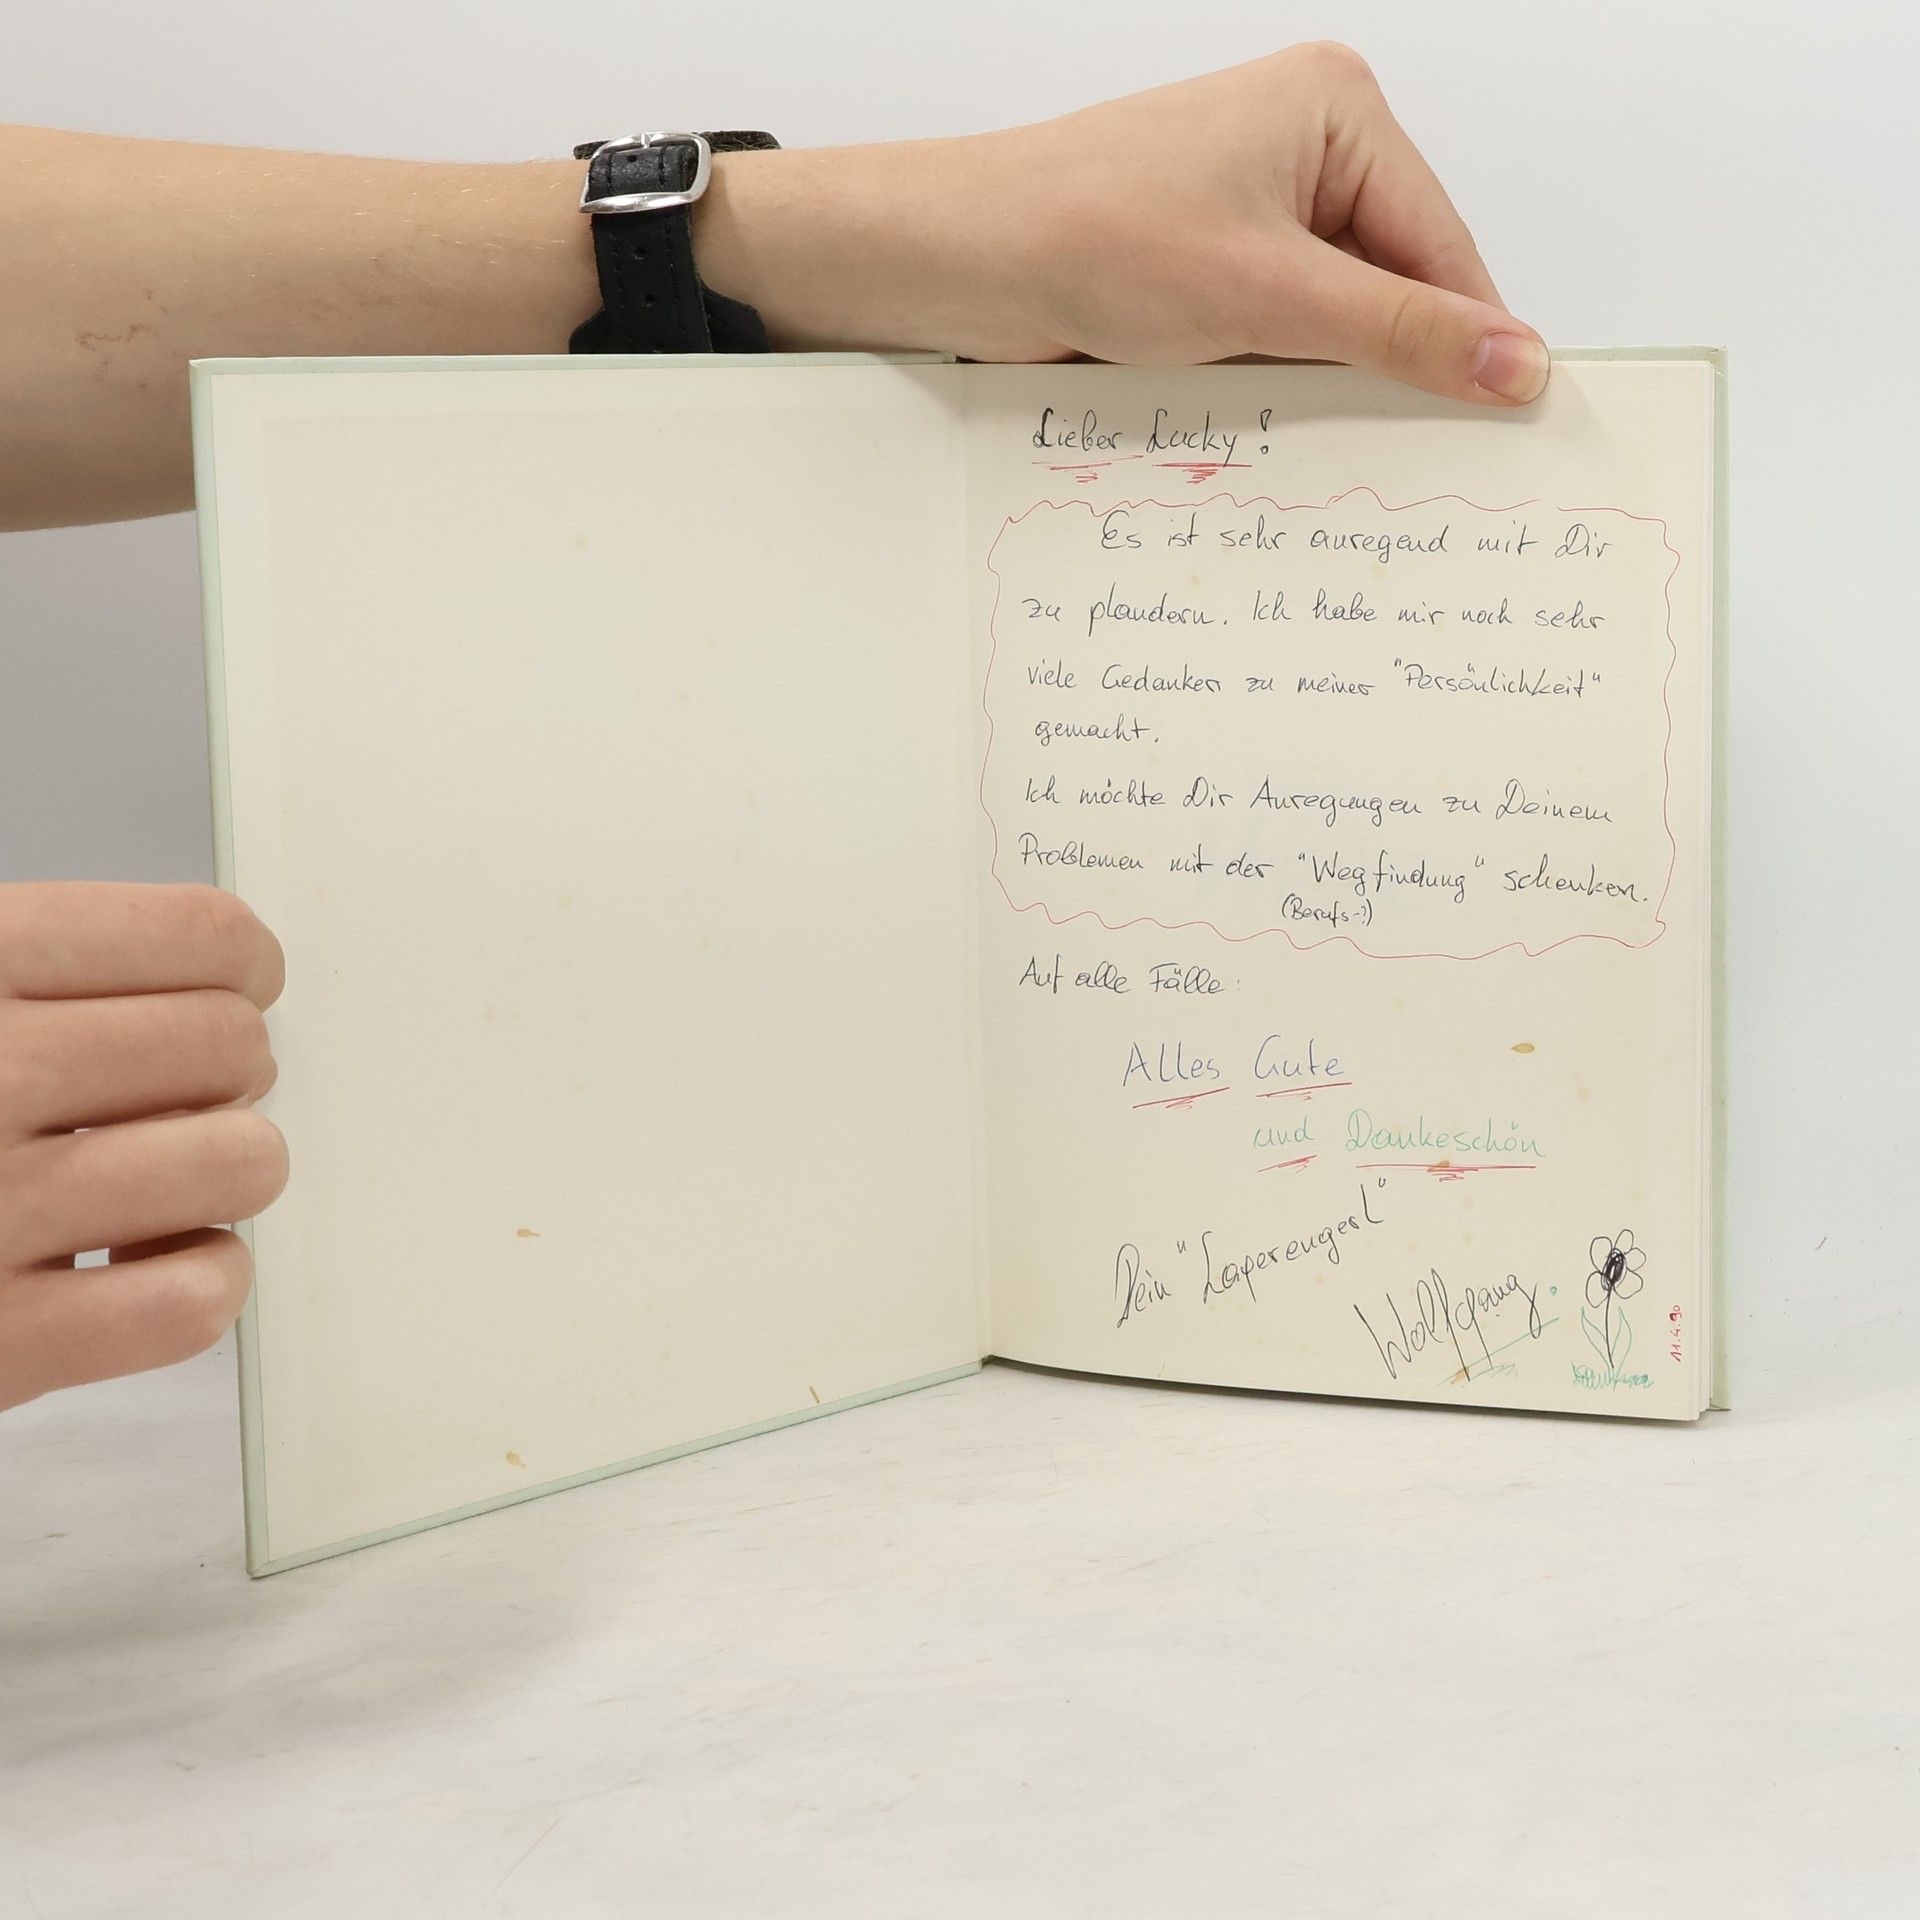 Lieber Lucky!
Es ist sehr anregend mit Dir
zu plaudern. Ich habe mir noch sehr
viele Gedanken zu meiner "Persönlichkeit"
gemacht.
Ich möchte Dir Anregungen zu Deinem
Problemen mit der "Wegfindung" schenken.
(Berufs-?)
Auf alle Fälle:
Alles Gute
und Dankeschön
Dein "Lagerengerl"
Wolfgang.
11.4.90